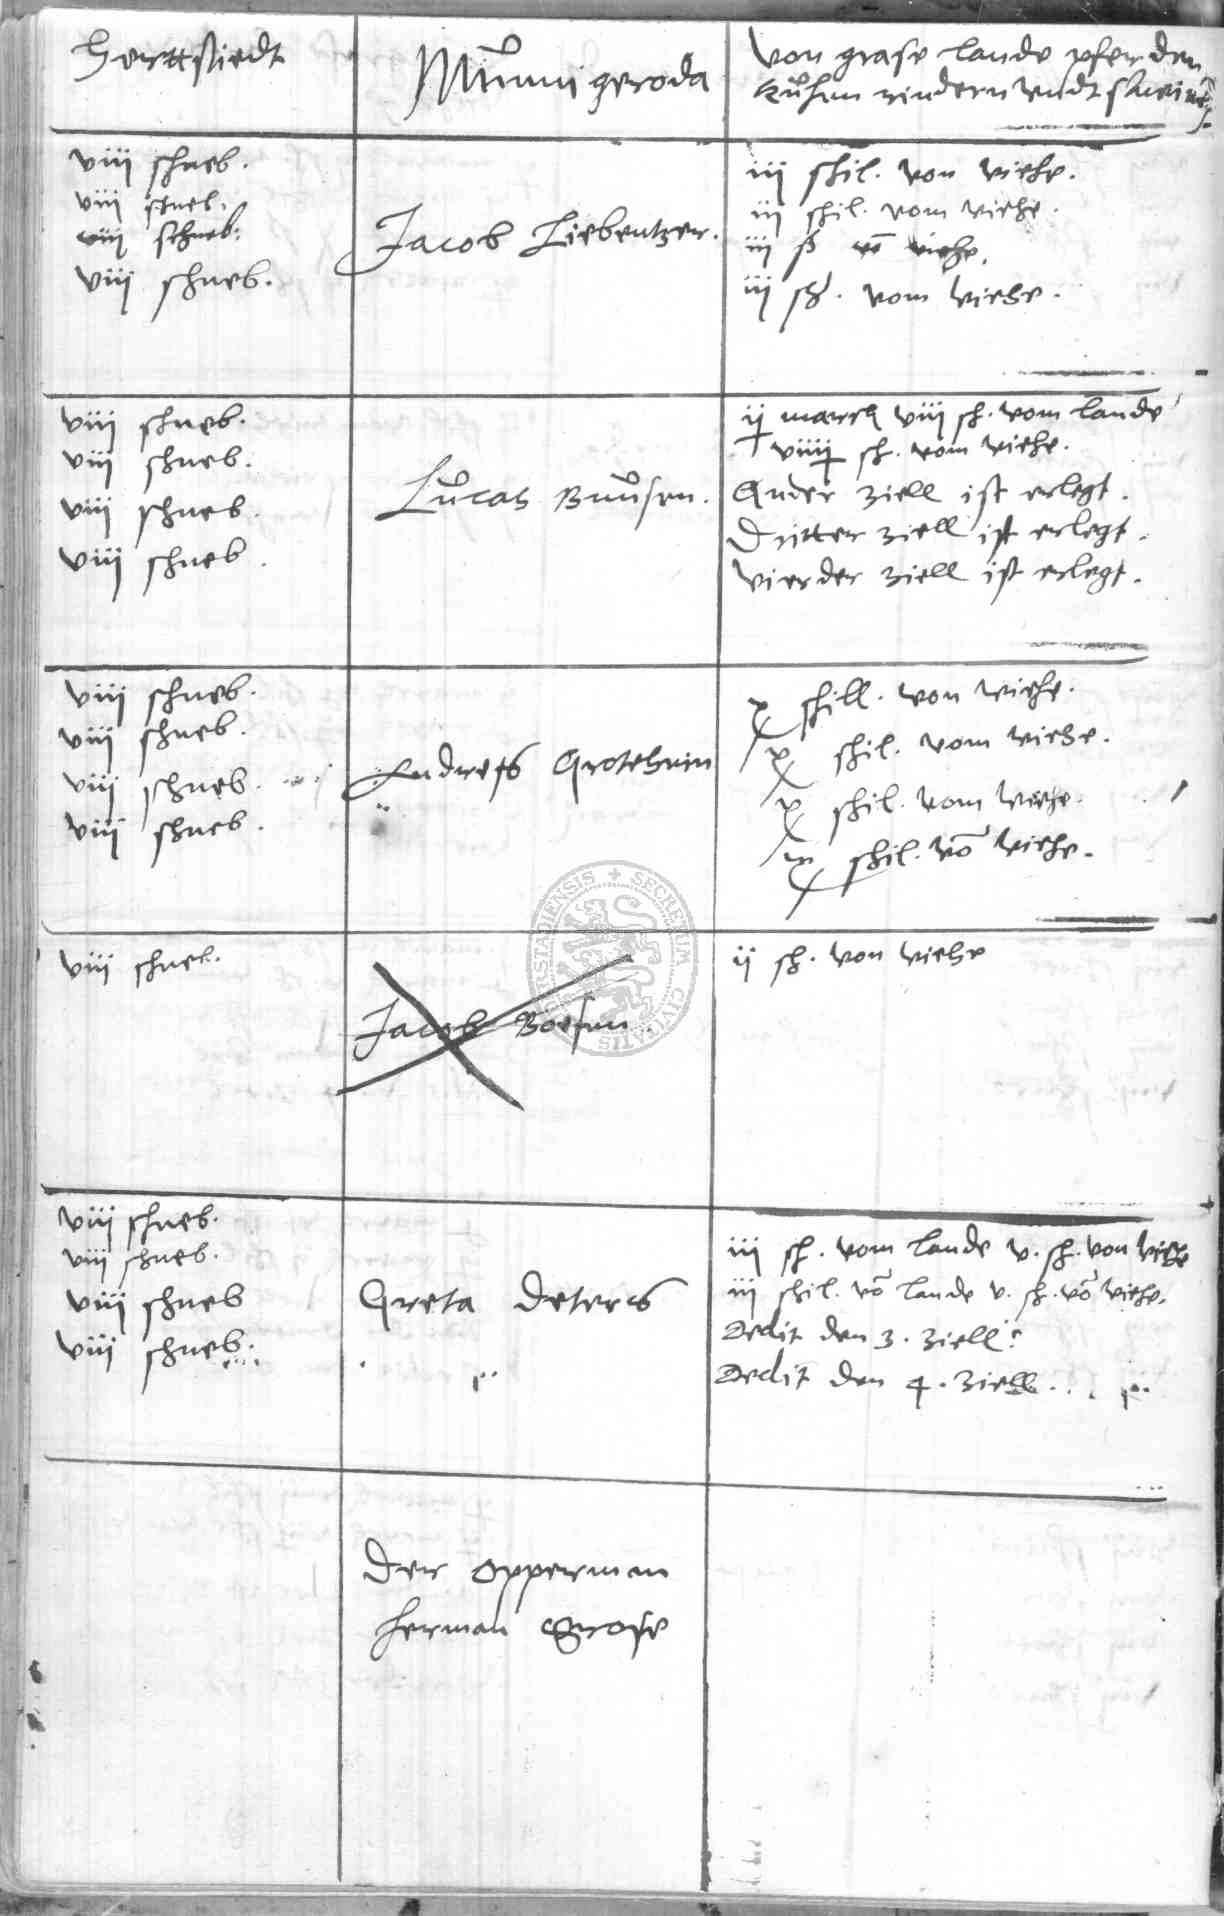 Herttstiedt
Munnigeroda
Von grase lande pferden
Kuhen rindern undt schweinē
viii schneb.
viii schneb.
viii schneb.
viii schneb.
Jacob Liebentzer.
iij schil. von viehe.
iij schil. vom viehe.
iij ß vō viehe.
iij sch. vom viehe.
viii schneb.
viii schneb.
viii schneb.
viii schneb.
Lucas Bunsen.
ij marck viii sch. vom lande
viiij sch. vom viehe.
Ander ziell ist erlegt.
Dritter ziell ist erlegt.
Vierder ziell ist erlegt.
viii schneb.
viii schneb.
viii schneb.
viii schneb.
Andreß Grotehenn
x schill. von viehe.
x schil. vom viehe.
x schil. vom viehe.
x schil. vō viehe.
viii schneb.
Jacob Boesenn
ij sch. von viehe
viii schneb.
viii schneb.
viii schneb
viii schneb.
Greta Deters
iij sch. vom lande v. sch. von viehe
iij schil. vō lande v. sch. vō viehe.
Dedit den 3. ziell.
Dedit den 4. ziell.
Der opperman
Herman Grose
SECRETUM CIVITATIS ERSTADIENSIS